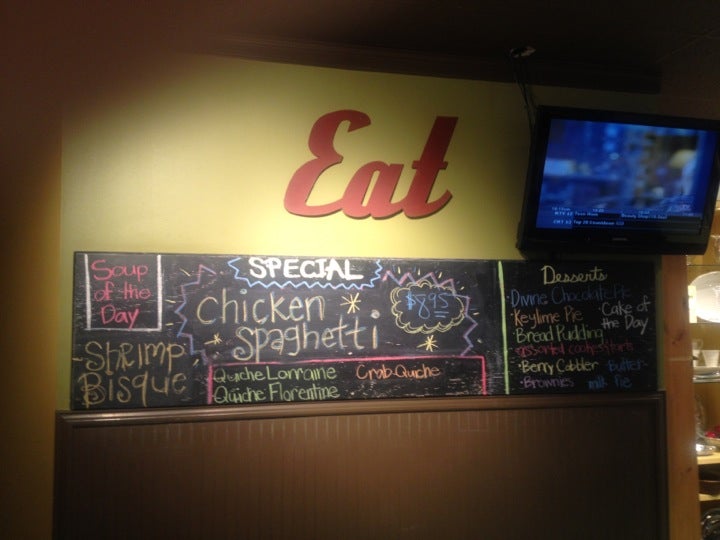 Eat
Soup
of the
Day
Shrimp
Bisque
SPECIAL
Chicken
Spaghetti
$8.95
Quiche Lorraine
Crab Quiche
Quiche Florentine
Desserts
Divine Chocolate Pie
Keylime Pie
Cake of
the Day
Bread Pudding
assorted cookies
Berry Cobbler
Butter-
milk Pie
Brownies
MTV 62 Teen Mom
CMT 63 Top 20 Countdown